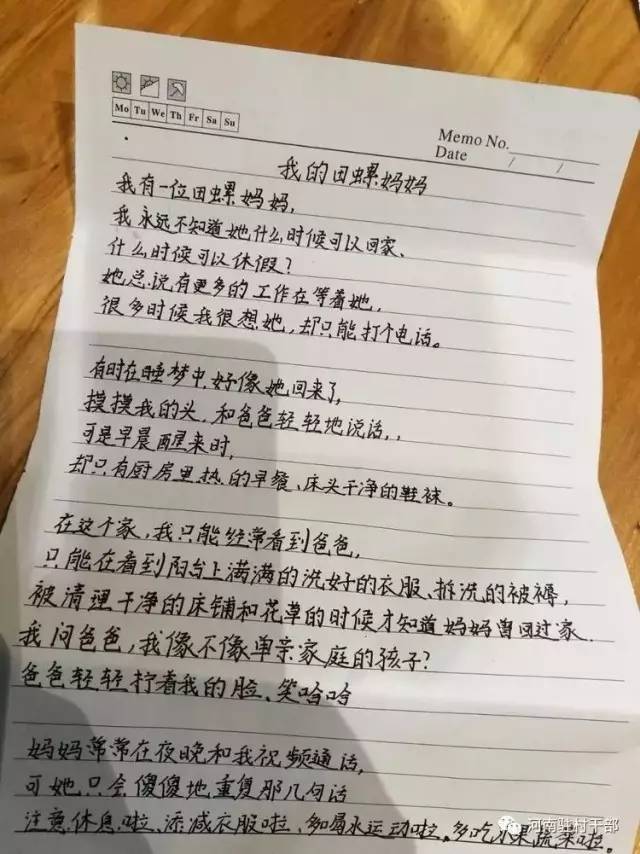 Mo Tu We Th Fr Sa Su
Memo No.
Date / /
我的田螺妈妈
我有一位田螺妈妈,
我永远不知道她什么时候可以回家、
什么时候可以休假?
她总说有更多的工作在等着她,
很多时候我很想她,却只能打个电话。
有时在睡梦中好像她回来了,
摸摸我的头、和爸爸轻轻地说话,,
可是早晨醒来时,
却只有厨房里热的早餐、床头干净的鞋袜。
在这个家,我只能经常看到爸爸,
只能在看到阳台上满满的洗好的衣服、拆洗的被褥,
被清理干净的床铺和花草的时候才知道妈妈曾回过家.
我问爸爸,我像不像单亲家庭的孩子?
爸爸轻轻拧着我的脸、笑哈哈
妈妈常常在夜晚和我视频通话,
可她只会傻傻地重复那几句话
注意休息啦、添减衣服啦、多喝水运动啦。多吃水果蔬菜啦。
河南驻村干部